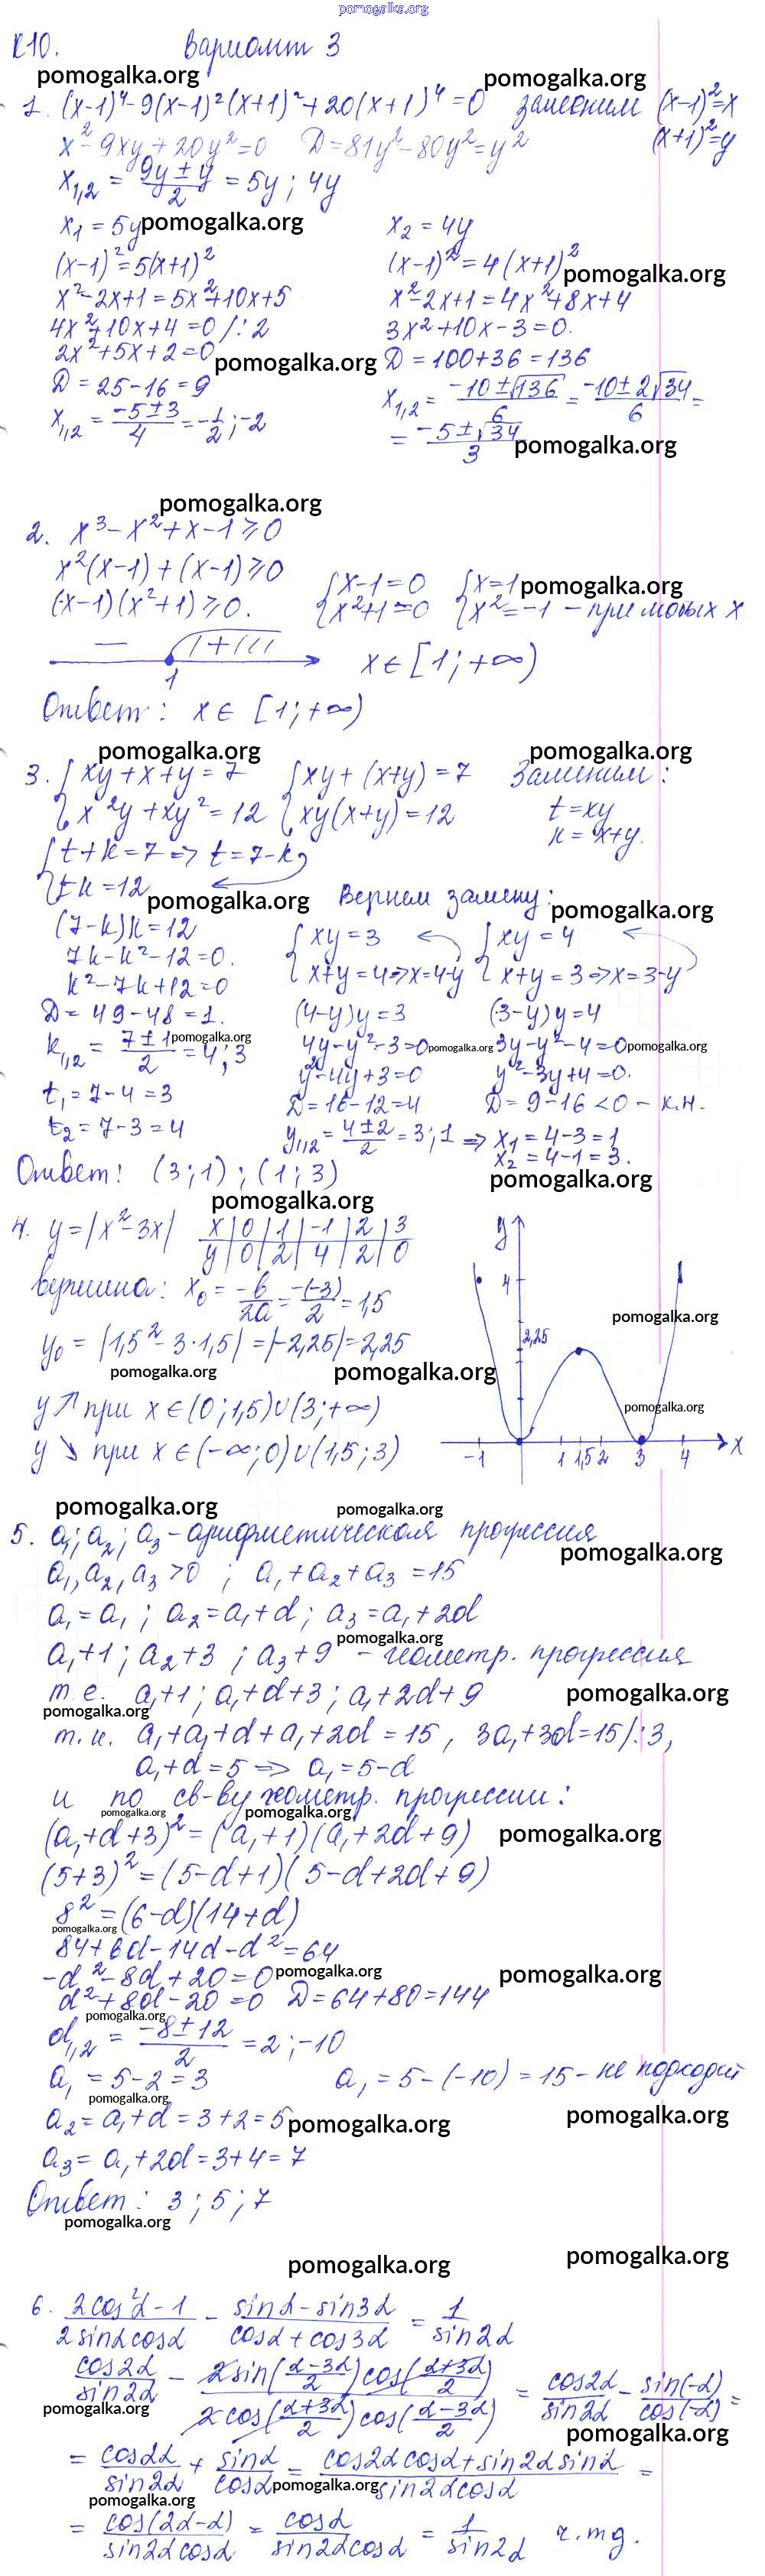 pomogalka.org
К10. Вариант 3
pomogalka.org pomogalka.org
1. (x-1)⁴-9(x-1)²(x+1)²+20(x+1)⁴=0 заменим (x-1)²=x
(x+1)²=y
x²-9xy+20y²=0 D=81y²-80y²=y²
x₁,₂ = (9y±y)/2 = 5y; 4y
x₁ = 5y pomogalka.org x₂ = 4y
(x-1)²=5(x+1)² (x-1)²=4(x+1)² pomogalka.org
x²-2x+1=5x²+10x+5 x²-2x+1=4x²+8x+4
4x²+10x+4=0 /:2 3x²+10x-3=0.
2x²+5x+2=0 pomogalka.org D=100+36=136
D=25-16=9 x₁,₂ = (-10±√136)/6 = (-10±2√34)/6 =
x₁,₂ = (-5±3)/4 = -1/2; -2 = (-5±√34)/3 pomogalka.org
pomogalka.org
2. x³-x²+x-1⩾0
x²(x-1)+(x-1)⩾0 {x-1=0 {x=1 pomogalka.org
(x-1)(x²+1)⩾0. {x²+1=0 {x²=-1 - при любых x
— + 1 x∈[1;+∞)
Ответ: x∈[1;+∞)
pomogalka.org pomogalka.org
3. {xy+x+y=7 {xy+(x+y)=7 Заменим:
{x²y+xy²=12 {xy(x+y)=12 t=xy
k=x+y.
{t+k=7 => t=7-k
{tk=12 pomogalka.org Вернем замену: pomogalka.org
(7-k)k=12 {xy=3 {xy=4
7k-k²-12=0. {x+y=4=>x=4-y {x+y=3=>x=3-y
k²-7k+12=0
D=49-48=1. (4-y)y=3 (3-y)y=4
k₁,₂ = (7±1)/2 = 4; 3 pomogalka.org 4y-y²-3=0 pomogalka.org 3y-y²-4=0 pomogalka.org
y²-4y+3=0 y²-3y+4=0.
t₁=7-4=3 D=16-12=4 D=9-16<0 - к.н.
t₂=7-3=4 y₁,₂ = (4±2)/2 = 3; 1 => x₁=4-3=1
x₂=4-1=3.
Ответ: (3;1);(1;3) pomogalka.org
pomogalka.org
4. y=|x²-3x| x|0|1|-1|2|3 y
y|0|2|4|2|0
вершина: x₀ = -b/2a = -(-3)/2 = 1,5 4
pomogalka.org
y₀=|1,5²-3·1,5|=|-2,25|=2,25 2,25
pomogalka.org pomogalka.org
y↗ при x∈(0;1,5)∪(3;+∞) pomogalka.org
y↘ при x∈(-∞;0)∪(1,5;3) -1 1 1,5 2 3 4 x
pomogalka.org pomogalka.org
5. a₁; a₂; a₃ - арифметическая прогрессия
pomogalka.org
a₁,a₂,a₃>0; a₁+a₂+a₃=15
a₁=a₁; a₂=a₁+d; a₃=a₁+2d
pomogalka.org
a₁+1; a₂+3; a₃+9 - геометр. прогрессия
т.е. a₁+1; a₁+d+3; a₁+2d+9 pomogalka.org
pomogalka.org
т.к. a₁+a₁+d+a₁+2d=15, 3a₁+3d=15/:3,
a₁+d=5 => a₁=5-d
и по св-ву геометр. прогрессии:
pomogalka.org pomogalka.org
(a₁+d+3)²=(a₁+1)(a₁+2d+9) pomogalka.org
(5+3)²=(5-d+1)(5-d+2d+9)
8²=(6-d)(14+d)
pomogalka.org
84+6d-14d-d²=64
-d²-8d+20=0 pomogalka.org pomogalka.org
d²+8d-20=0 D=64+80=144
pomogalka.org
d₁,₂ = (-8±12)/2 = 2; -10
a₁=5-2=3 a₁=5-(-10)=15 - не подходит
pomogalka.org
a₂=a₁+d=3+2=5 pomogalka.org pomogalka.org
a₃=a₁+2d=3+4=7
Ответ: 3; 5; 7
pomogalka.org
pomogalka.org pomogalka.org
6. (2cos²α-1)/(2sinαcosα) - (sinα-sin3α)/(cosα+cos3α) = 1/sin2α
cos2α/sin2α - (2sin((α-3α)/2)cos((α+3α)/2))/(2cos((α+3α)/2)cos((α-3α)/2)) = cos2α/sin2α - sin(-α)/cos(-α) =
pomogalka.org pomogalka.org
= cos2α/sin2α + sinα/cosα = (cos2αcosα+sin2αsinα)/(sin2αcosα) =
pomogalka.org
pomogalka.org
= cos(2α-α)/(sin2αcosα) = cosα/(sin2αcosα) = 1/sin2α ч.тд.